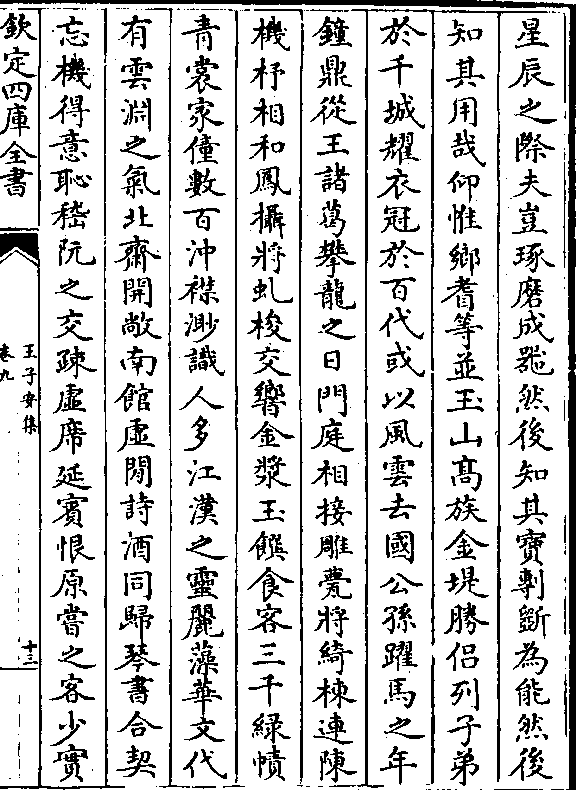 星辰之際夫豈琢磨成器然後知其寶剸斷為能然後
知其用哉仰惟鄉耆等並玉山高族金堤勝侣列子弟
於千城耀衣冠於百代或以風雲去國公孫躍馬之年
鐘鼎從王諸葛攀龍之日門庭相接雕甍將綺棟連陳
機杼相和鳳攝將虬梭交響金漿玉饌食客三千緑幘
青裳家僮數百沖襟渺識人多江漢之靈麗藻華文代
有雲淵之氣北齋開敞南館虛閒詩酒同歸琴書合契
忘機得意恥嵇阮之交疎虛席延賓恨原嘗之客少實
欽定四庫全書
王子安集
卷九
十三